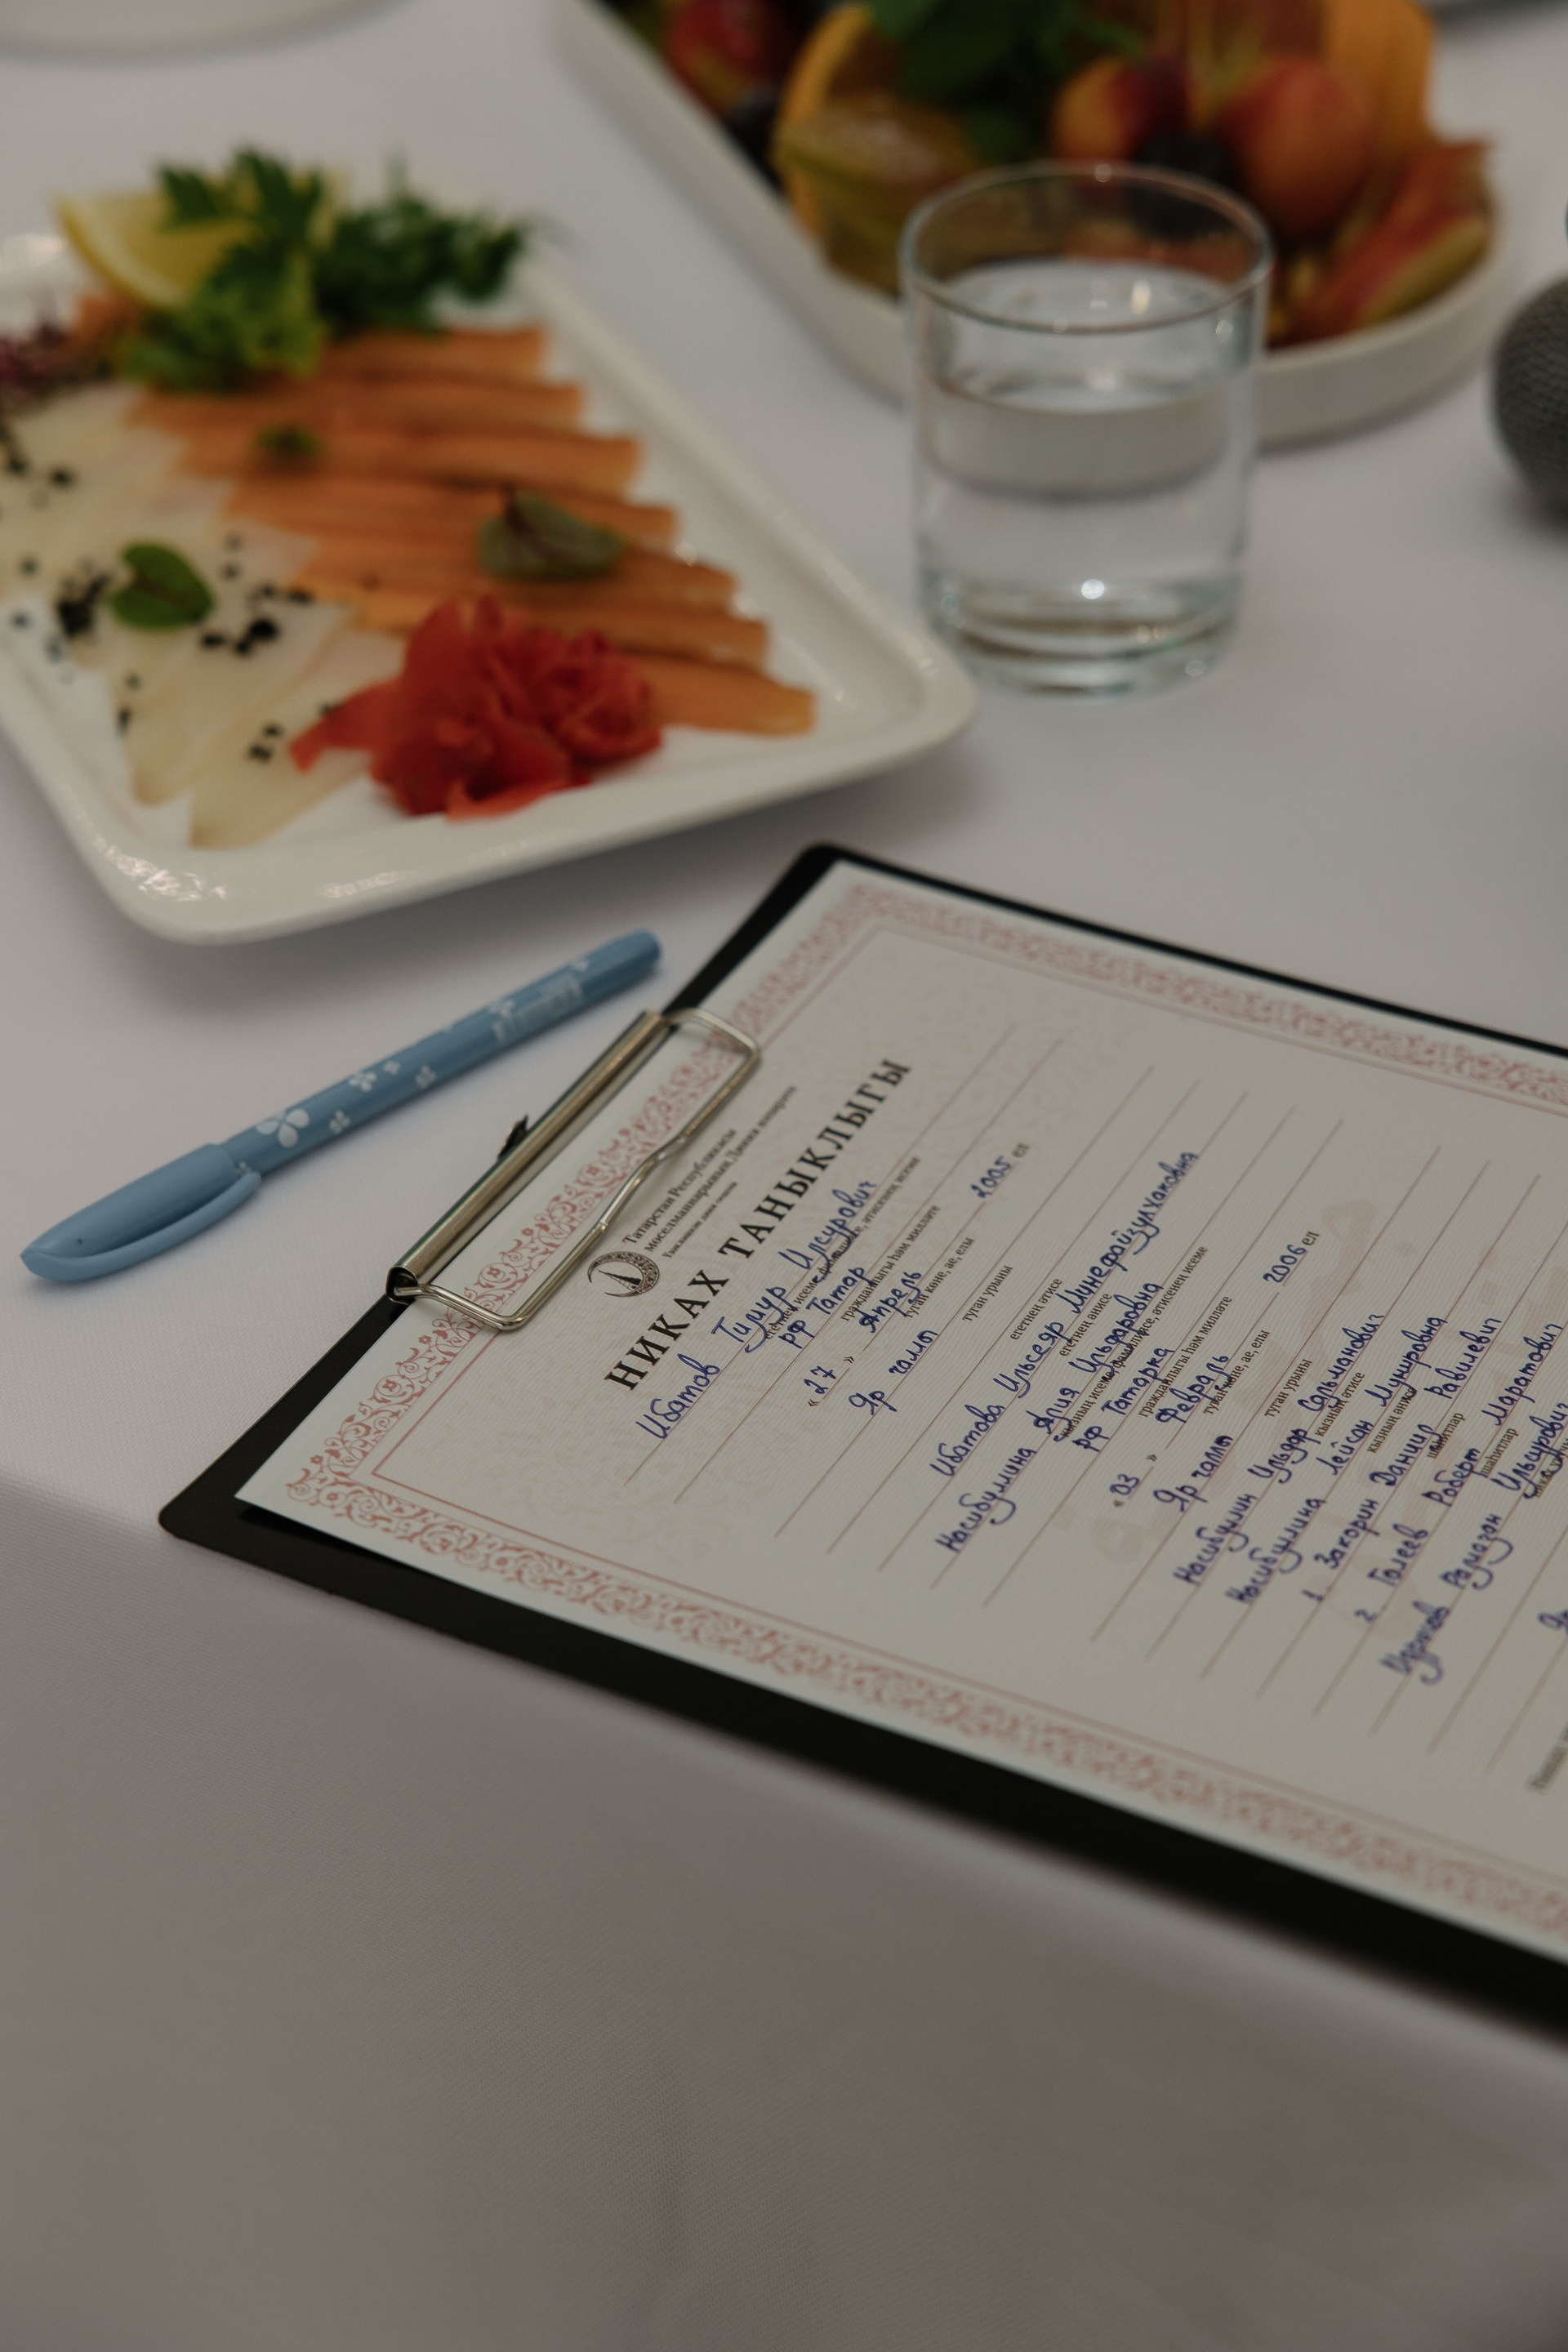 Татарстан Республикасы
мөселманнарының Диния нәзарәте
НИКАХ ТАНЫКЛЫГЫ
Ибатов Тимур Илсурович
егетнең исеме, фамилиясе, әтисенең исеме
РФ Татар
гражданлыгы һәм милләте
« 27 » Апрель 2005 ел
туган көне, ае, елы
Яр чаллы
туган урыны
егетнең әтисе
Ибатова Ульсеяр Минефайзулхаковна
егетнең әнисе
Насибуллина Алия Ильдаровна
кызның исеме, фамилиясе, әтисенең исеме
РФ Татарка
гражданлыгы һәм милләте
« 03 » Февраль 2006 ел
туган көне, ае, елы
Яр чаллы
туган урыны
Насибуллин Ильдар Сальманович
кызның әтисе
Насибуллина Лейсан Мунировна
кызның әнисе
1. Закорин Данир Равилевич
шаһитлар
2 Галеев Роберт Маратович
шаһитлар
Рамазан Ильсурович